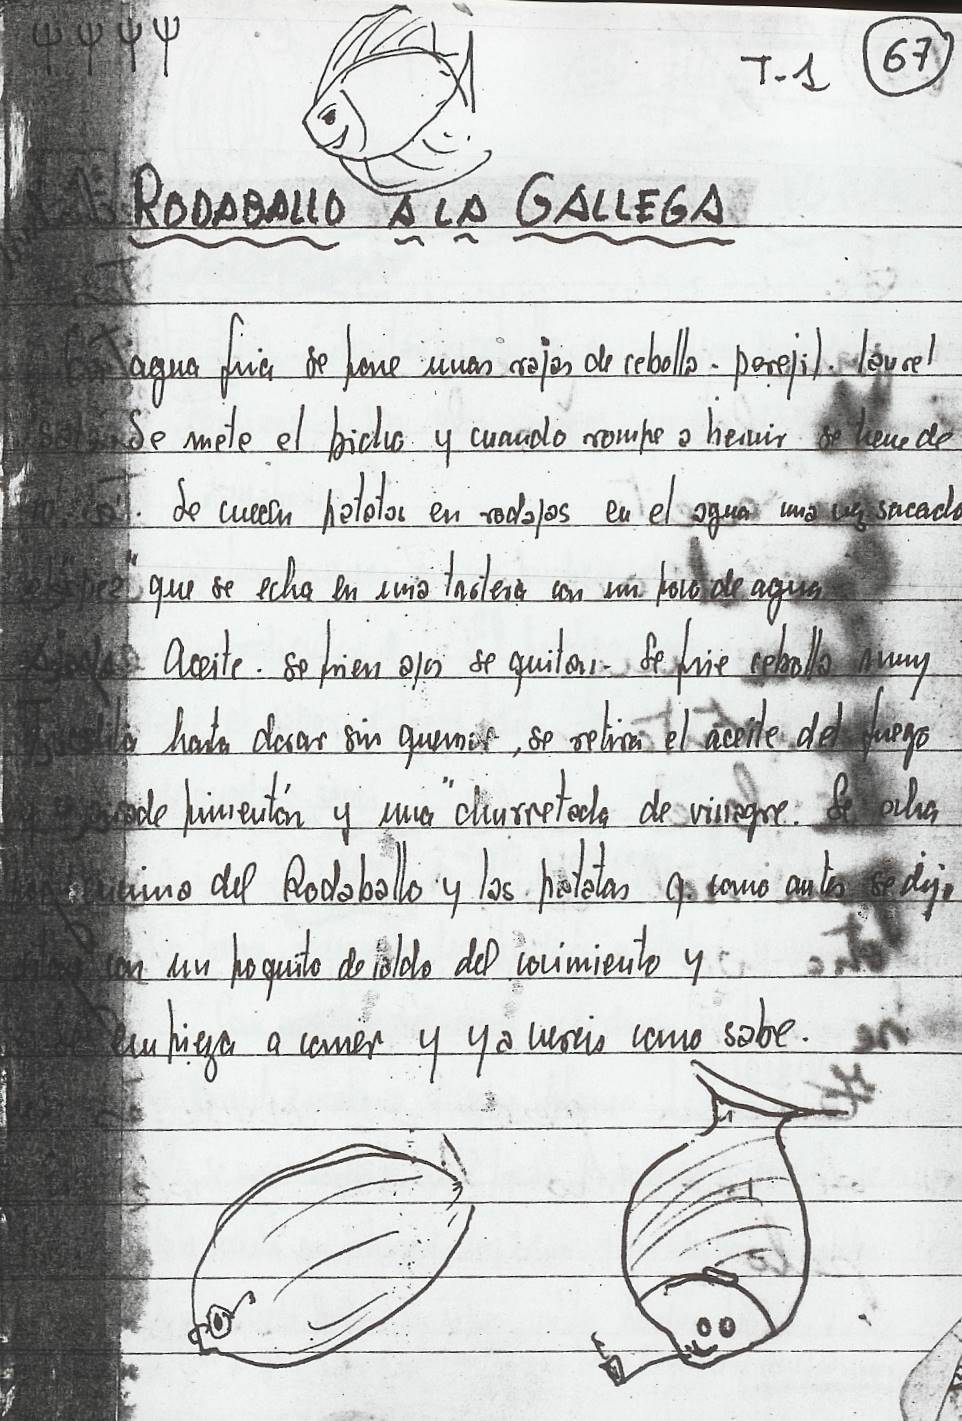 T-1 67
RODABALLO A LA GALLEGA
agua fria se pone unas rajas de cebolla. perejil. laurel
Se mete el bicho y cuando rompe a hervir se tiene de
Se cuecen patatas en rodajas en el agua una vez sacado
que se echa en una tartera con un poco de agua
Aceite. se frien ajos se quitan. Se frie cebolla muy
hasta dorar sin quemar, se retira el aceite del fuego
pimentón y una "churretada de vinagre. Se echa
encima del Rodaballo y las patatas q. como antes se dijo
con un poquito de caldo del cocimiento y
empieza a comer y ya vereis como sabe.